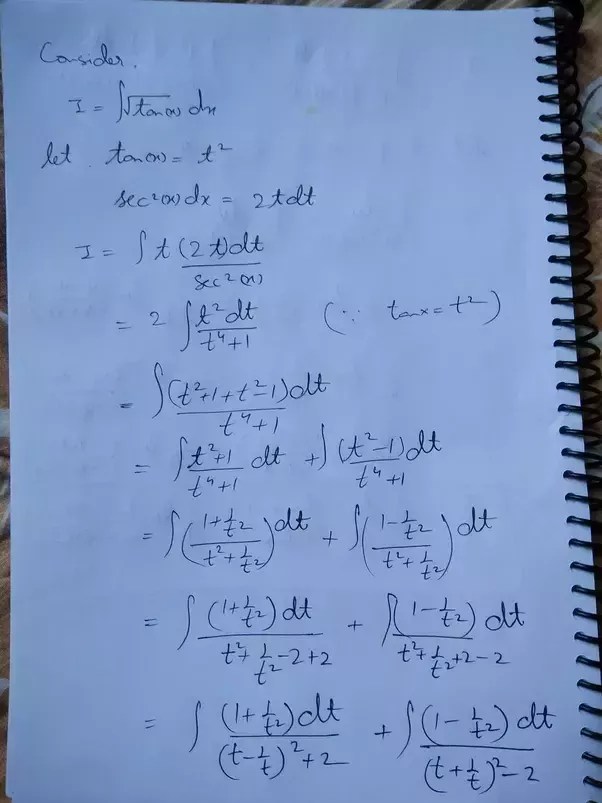 Consider.
I = ∫√tan(x) dx
let tan(x) = t²
sec²(x) dx = 2t dt
I = ∫ t (2t)dt / sec²(x)
= 2 ∫ t² dt / t⁴+1 (∵ tanx = t²)
= ∫ (t²+1+t²-1)dt / t⁴+1
= ∫ t²+1 / t⁴+1 dt + ∫ (t²-1)dt / t⁴+1
= ∫ (1+1/t² / t²+1/t²) dt + ∫ (1-1/t² / t²+1/t²) dt
= ∫ (1+1/t²) dt / t²+1/t²-2+2 + ∫ (1-1/t²) dt / t²+1/t²+2-2
= ∫ (1+1/t²)dt / (t-1/t)²+2 + ∫ (1-1/t²) dt / (t+1/t)²-2